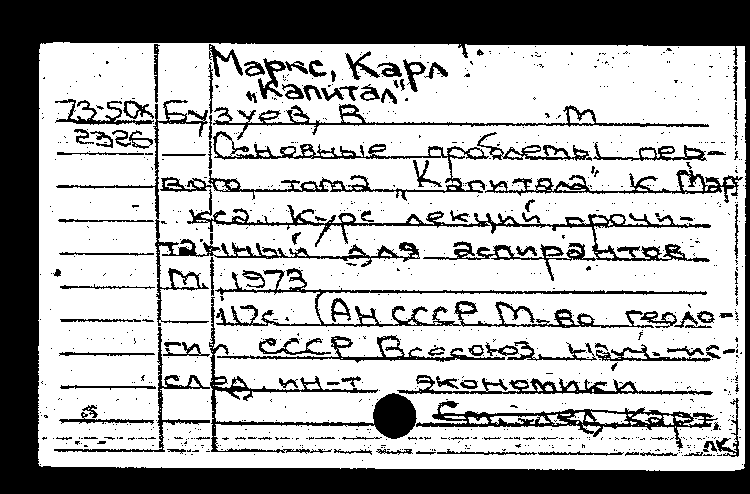 Маркс, Карл
"Капитал".
73:50к Бузуев, В М
2326 Основные проблемы пер-
вого тома „Капитала" К. Мар
кса. Курс лекций, прочи-
танный для аспирантов
М. 1973
117с. (АН СССР. М-во геоло-
гии СССР. Всесоюз. науч.-ис-
след. ин-т экономики
См. след. карт.
лк